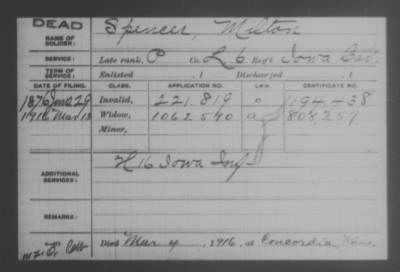 DEAD
NAME OF SOLDIER: Spencer, Milton
SERVICE: Late rank, P Co. L 6 Reg't Iowa Cav.
TERM OF SERVICE: Enlisted , 1 Discharged , 1
DATE OF FILING. CLASS. APPLICATION NO. LAW. CERTIFICATE NO.
1876 June 29 Invalid, 221.819 o 194438
1916 Mar 13 Widow, 1062540 a 808257
Minor,
ADDITIONAL SERVICES: H 16 Iowa Inf
REMARKS:
Died Mar 4, 1916, at Concordia, Kans.